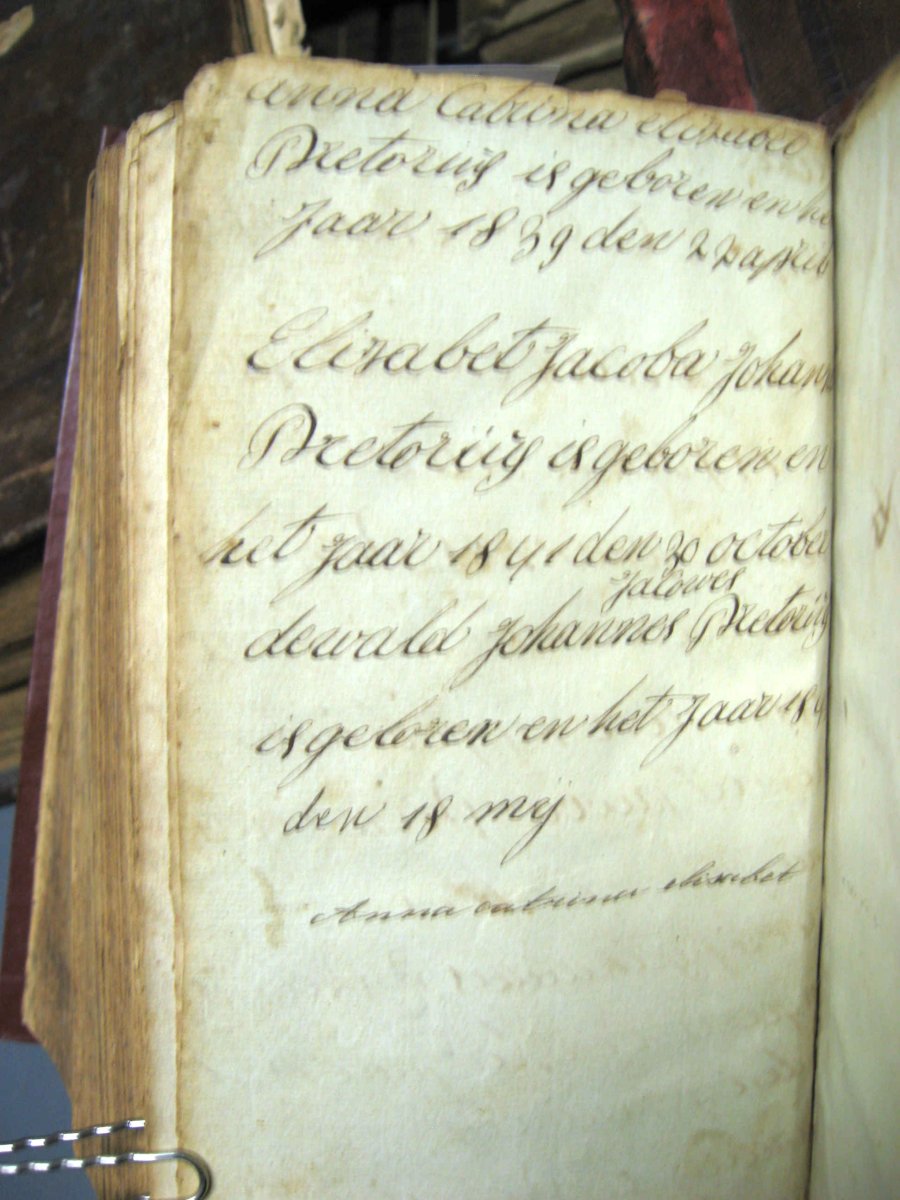 anna Catrina elisabet
Pretoriijs is geboren en he
Jaar 1839 den 22 april
Elisabet Jacoba Johann
Pretoriijs is geboren en
het Jaar 1841 den 20 october
Jacowes
dewald Johannes Pretorijs
is geboren en het Jaar 184
den 18 mej
Anna catrina elisabet